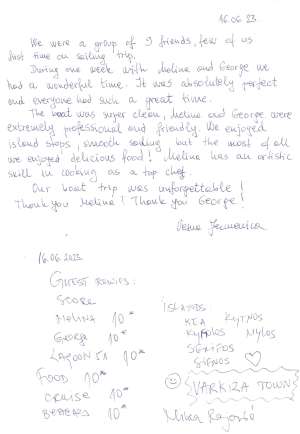 16.06.23
We were a group of 9 friends, few of us
first time on sailing trip.
During one week with Melina and George we
had a wonderful time. It was absolutely perfect
and everyone had such a great time.
The boat was super clean, Melina and George were
extremely professional and friendly. We enjoyed
island stops, smooth sailing but the most of all
we enjoyed delicious food! Melina has an artistic
skill in cooking as a top chef.
Our boat trip was unforgettable!
Thank you Melina! Thank you George!
16.06.2023.
GUEST REVIEWS:
SCORE
MELINA 10*
GEORGE 10*
LAGOON 51 10*
FOOD 10*
CRUISE 10*
10*
ISLANDS
KEA KYTNOS
MYLOS
SERIFOS
SIFNOS
VARKIZA TOWN